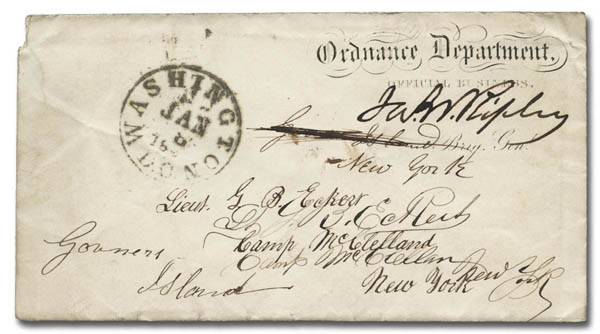 Ordnance Department,
OFFICIAL BUSINESS.
WASHINGTON
JAN
Jas. W. Ripley
Brig. Gen.
New York
Lieut. G. B. Eckert
Eckert
Camp McClelland
Camp McClellan
New York
New York
Governers
Island